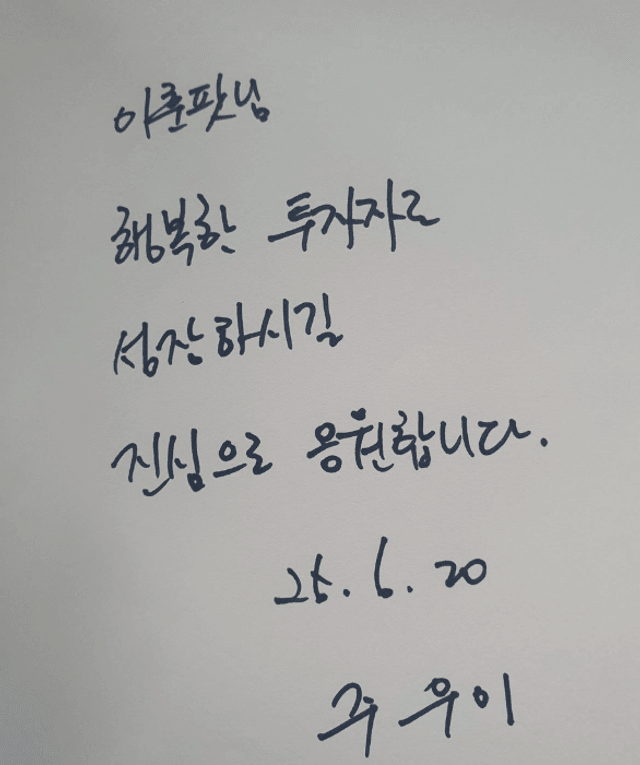 이춘팟님
행복한 투자자로
성장하시길
진심으로 응원합니다.
25. 6. 20
주우이